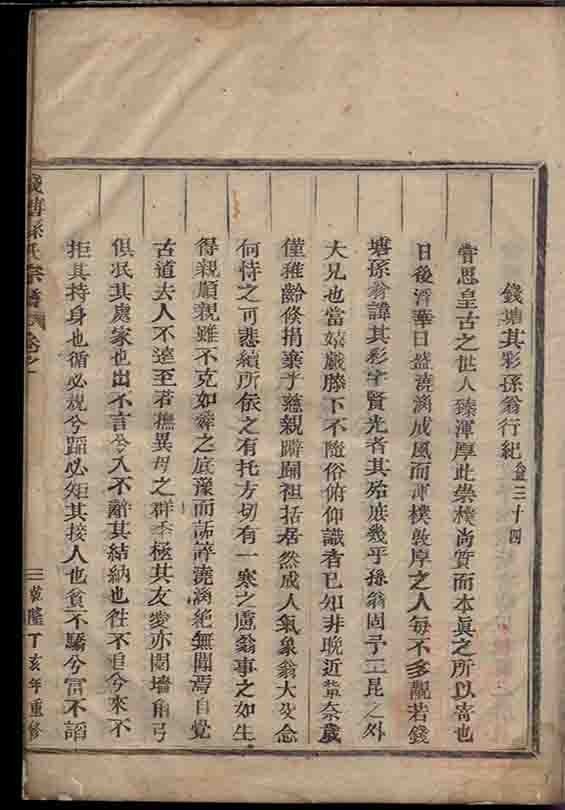 錢塘其彩孫翁行紀 三十四
嘗思皇古之世人臻渾厚此崇樸尚質而本眞之所以寄也
日後濟華日盛澆漓成風而渾樸敦厚之人每不多覯若錢
塘孫翁諱其彩字賢光者其殆庶幾乎孫翁固予二昆之外
大兄也當嬉戲膝下不隨俗俯仰識者已知非晚近輩奈歲
僅稚齡倏捐棄于慈親躃踊袒括居然成人氣象翁大父念
何恃之可悲續所依之有托方切有一寒之慮翁事之如生
得親順親雖不克如舜之底豫而詬誶澆漓絕無聞焉自覺
古道去人不遠至若撫異母之群季極其友愛亦閱墻角弓
俱泯其處家也出不言兮入不辭其結納也徃不追兮來不
拒其持身也循必規兮蹈必矩其接人也貧不驕兮富不諂
錢塘孫氏宗譜 卷之一
三 乾隆丁亥年重修